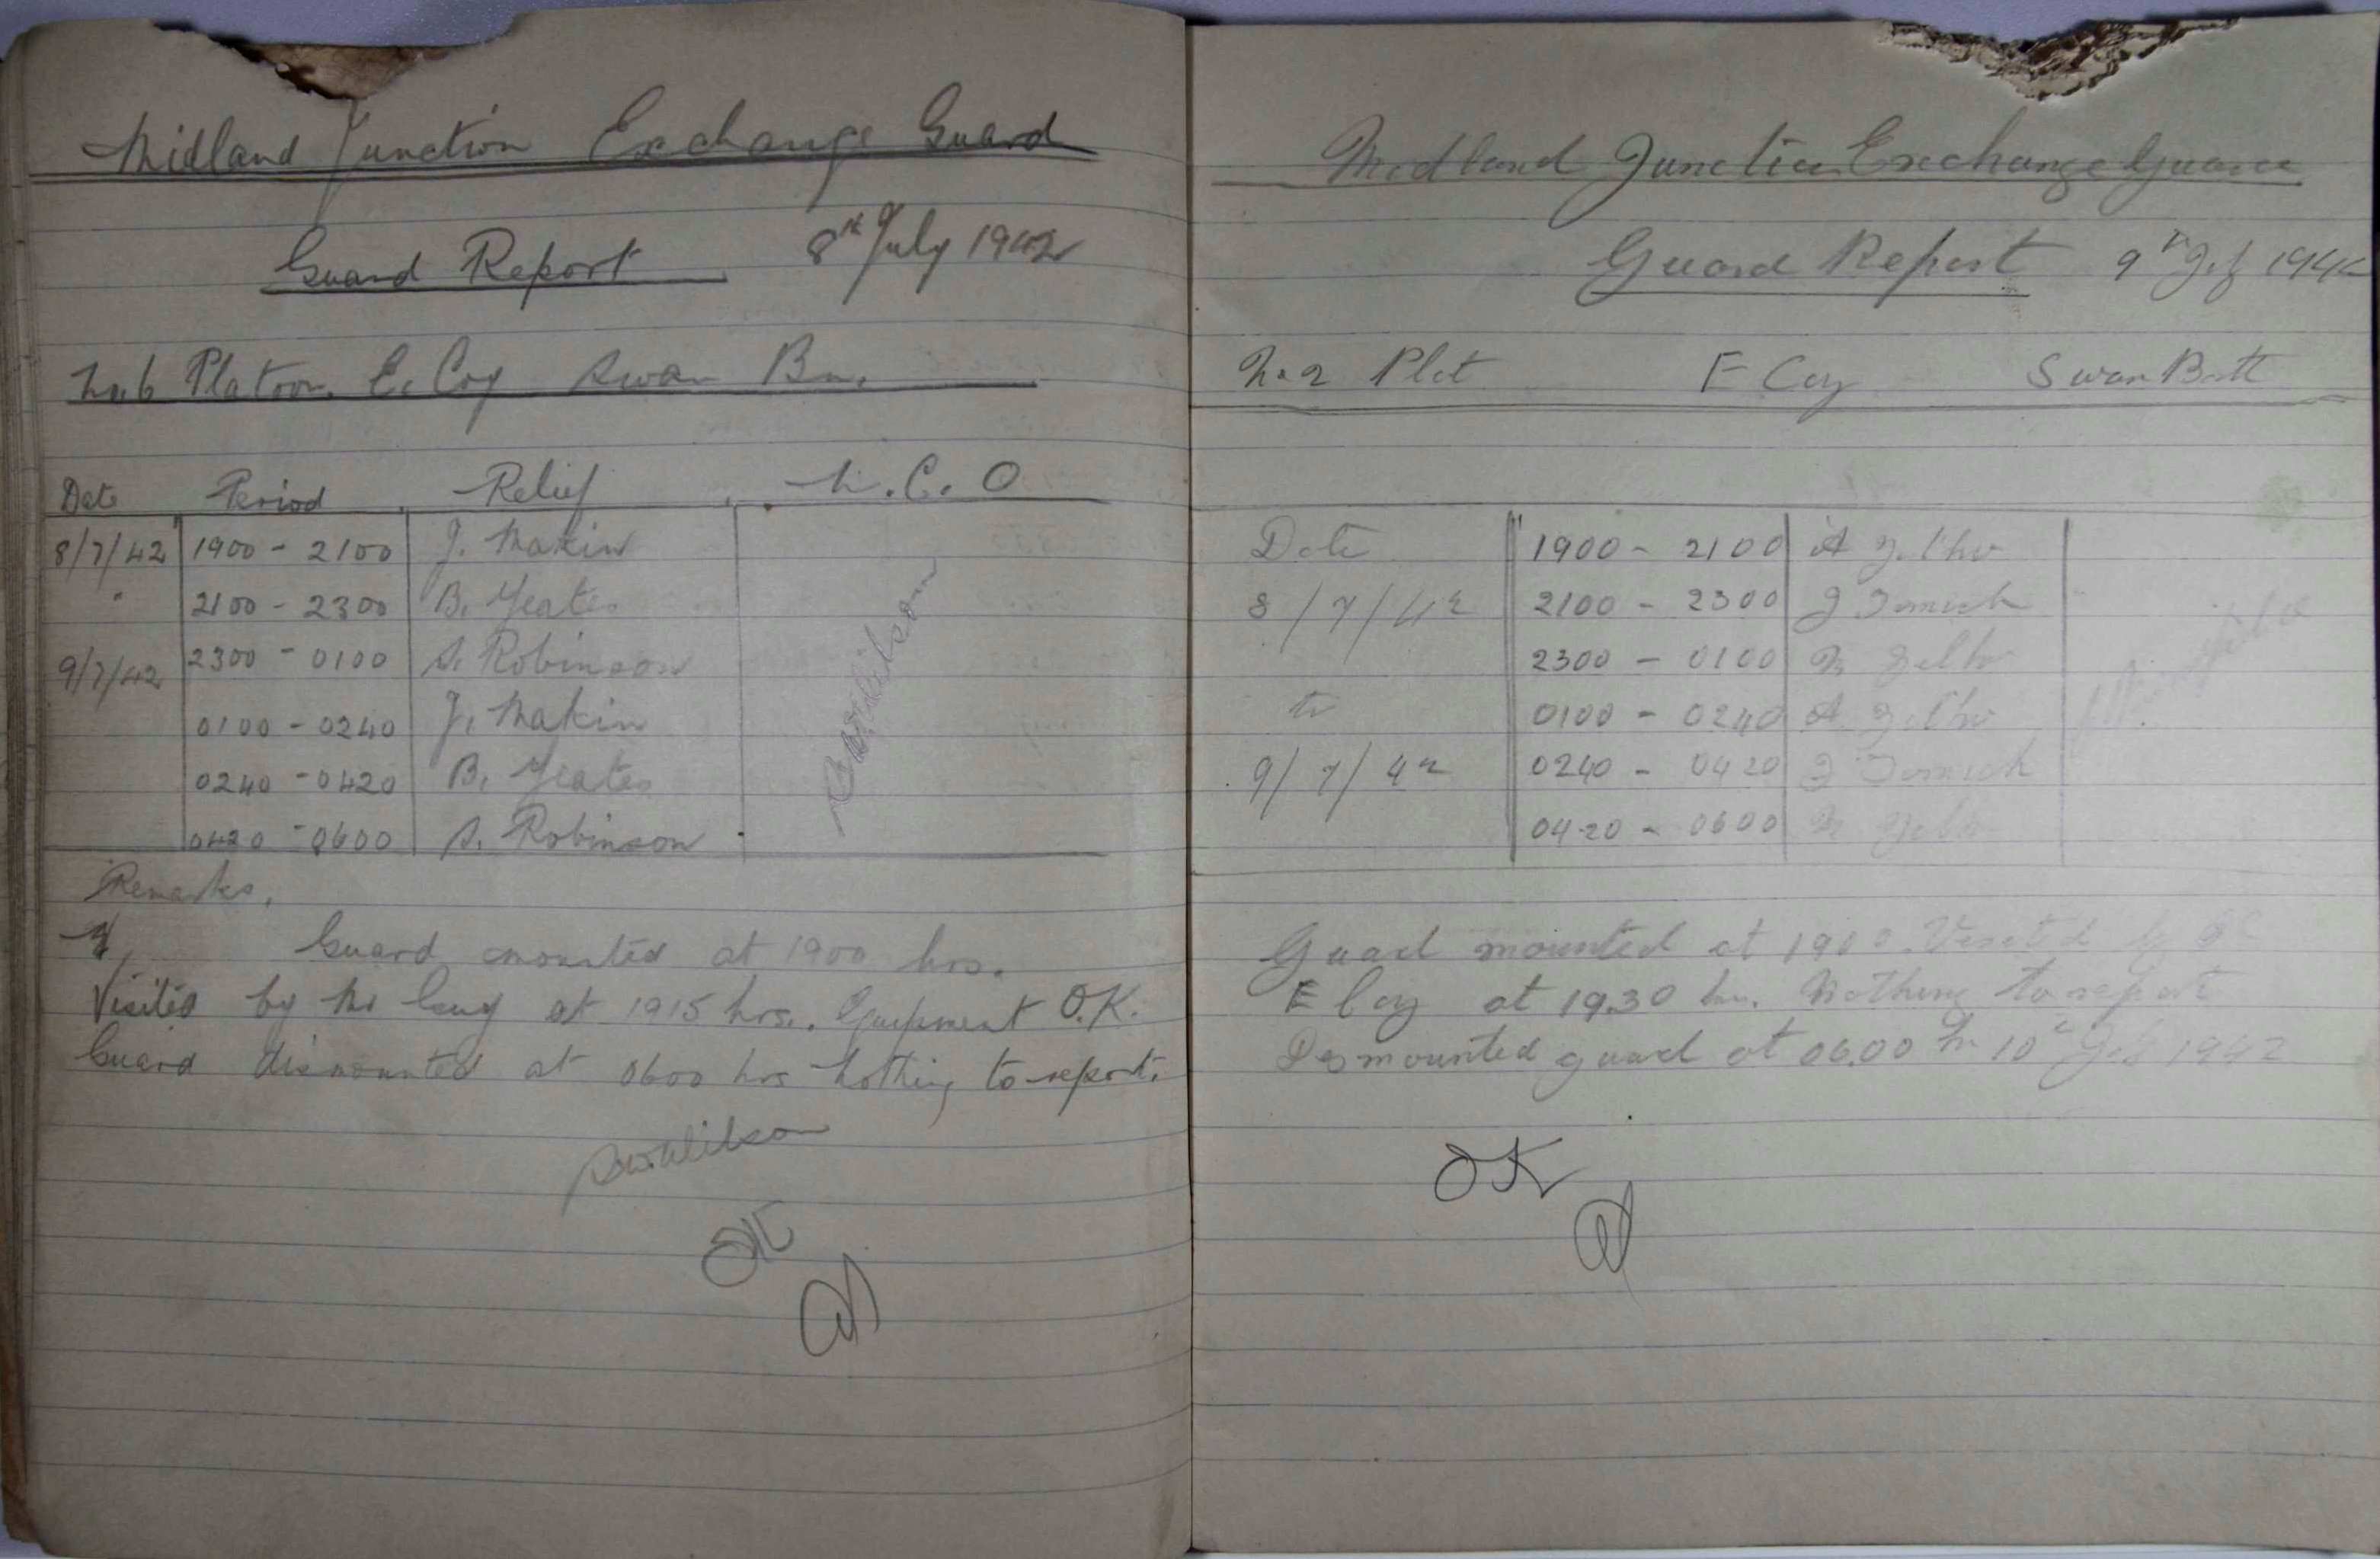 Midland Junction Exchange Guard
Guard Report 8th July 1942
No. 6 Platoon. E. Coy Swan Bn.
Date Period Relief N.C.O
8/7/42 1900 - 2100 J. Makin
" 2100 - 2300 B. Yeates
9/7/42 2300 - 0100 S. Robinson
0100 - 0240 J. Makin
0240 - 0420 B. Yeates
0420 - 0600 S. Robinson
Remarks.
Guard mounted at 1900 hrs.
Visited by Mr at 1915 hrs. Equipment O.K.
Guard dismounted at 0600 hrs nothing to report.
OK
Midland Junction Exchange Guard
Guard Report 9th 1942
No 2 Plat E Coy Swan Batt
Date 1900 - 2100 A
8/7/42 2100 - 2300 J Tomich
2300 - 0100
to 0100 - 0240 A
9/7/42 0240 - 0420 J Tomich
0420 - 0600
Guard mounted at 1900. Visited by
E Coy at 19.30 hrs. Nothing to report
Dismounted guard at 06.00 hr 10th 1942
OK